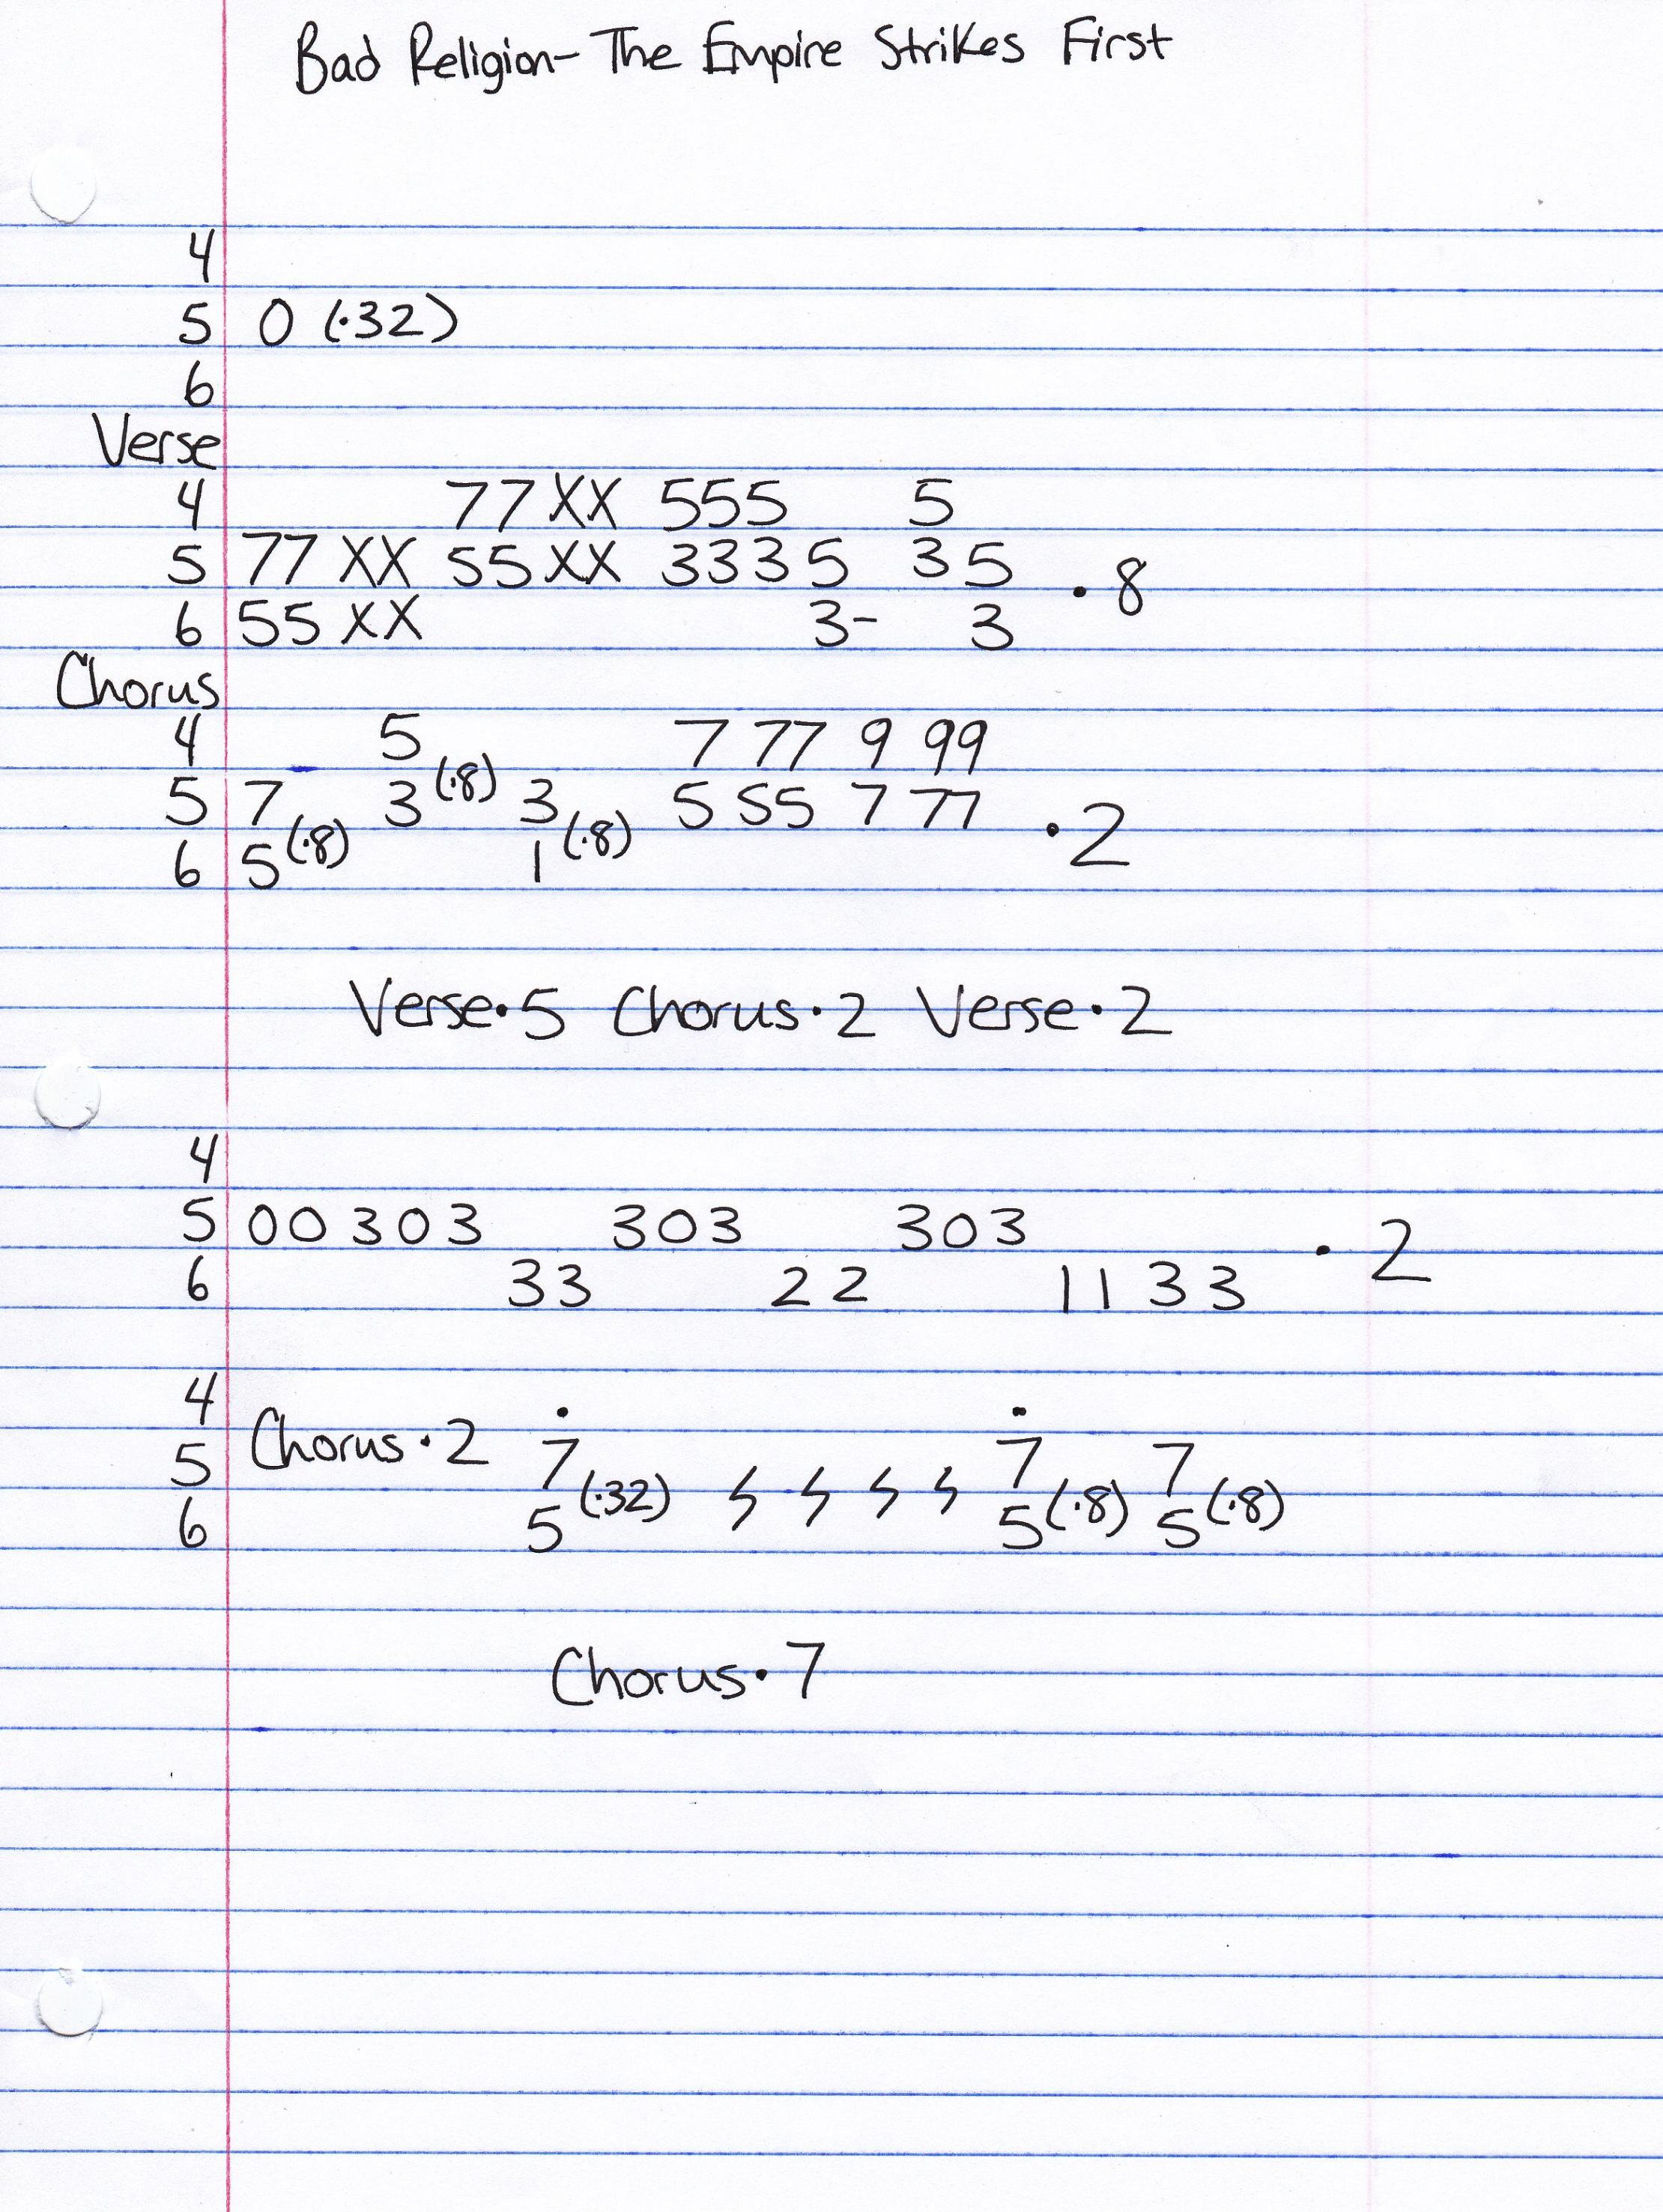 Bad Religion- The Empire Strikes First
4
5 0 (·32)
6
Verse
4 77XX 555 5
5 77 XX 55XX 3335 35
6 55 XX 3- 3
· 8
Chorus
4 5 7 77 9 99
5 7 3 (·8) 3 5 55 7 77
6 5 (·8) 1 (·8)
· 2
Verse·5 Chorus·2 Verse·2
4
5 00303 303 303
6 33 22 11 33
· 2
4
5 Chorus·2 7 7 7
6 5 (·32) 5 (·8) 5 (·8)
Chorus·7